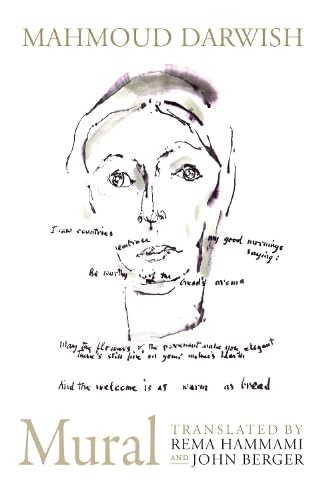 MAHMOUD DARWISH
I saw countries embrace my good mornings
saying:
Be worthy of the bread's aroma
May the flowers of the pavement make you elegant
there's still fire on your mother's hearth
And the welcome is as warm as bread
Mural
TRANSLATED BY
REMA HAMMAMI
AND JOHN BERGER